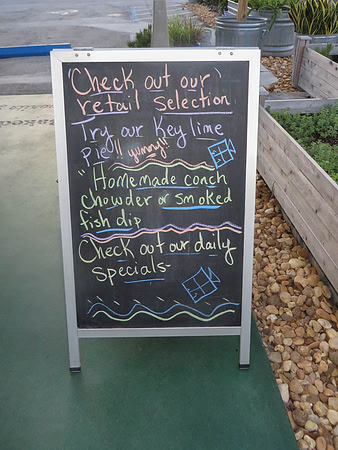 "Check out our
retail selection
Try our Key lime
Pie!! yummy!!
"Homemade conch
chowder or smoked
fish dip
Check out our daily
specials-